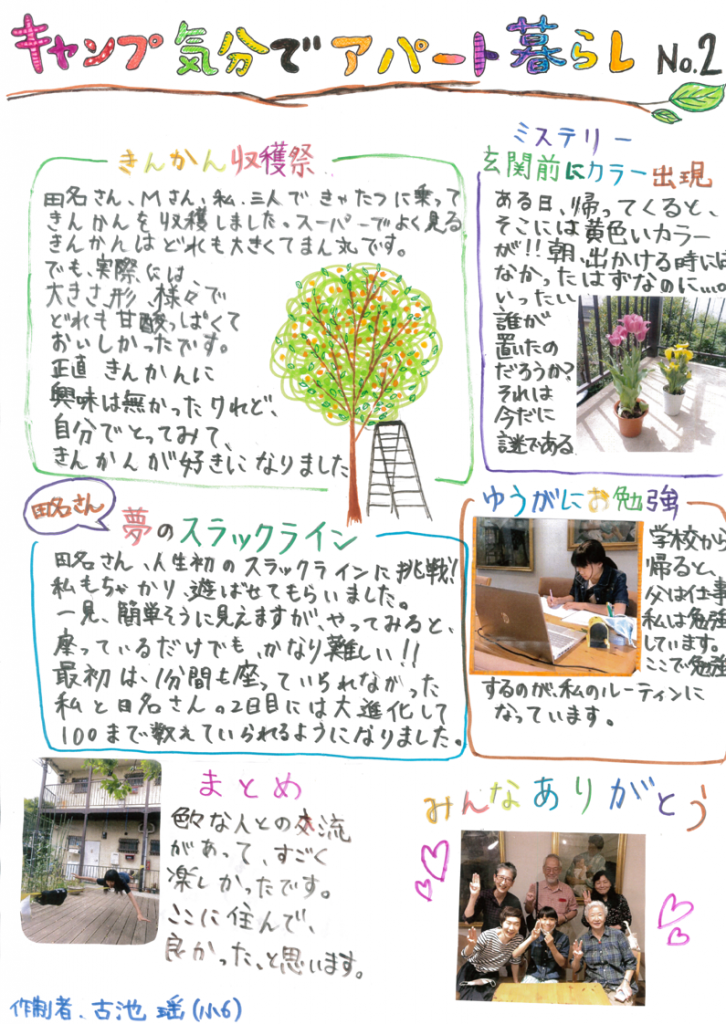 キャンプ気分でアパート暮らし No.2
きんかん収穫祭
田名さん、Mさん、私、三人できゃたつに乗って
きんかんを収穫しました。スーパーでよく見る
きんかんはどれも大きくてまん丸です。
でも、実際には、
大きさ、形、様々で
どれも甘酸っぱくて
おいしかったです。
正直きんかんに
興味は無かったけれど、
自分でとってみて、
きんかんが好きになりました
ミステリー
玄関前にカラー出現
ある日、帰ってくると、
そこには黄色いカラー
が!!朝、出かける時には
なかったはずなのに…。
いったい
誰が
置いたの
だろうか?
それは
今だに
謎である
田名さん
夢のスラックライン
田名さん、人生初のスラックラインに挑戦!
私もちゃかり、遊ばせてもらいました。
一見、簡単そうに見えますが、やってみると、
座っているだけでも、かなり難しい!!
最初は、1分間も座っていられなかった
私と田名さんの2日目には大進化して
100まで数えていられるようになりました。
ゆうがにお勉強
学校から
帰ると、
父は仕事
私は勉強
しています。
ここで勉強
するのが、私のルーティンに
なっています。
まとめ
色々な人との交流
があって、すごく
楽しかったです。
ここに住んで、
良かった、と思います。
みんなありがとう
作制者、古池 瑶(小6)